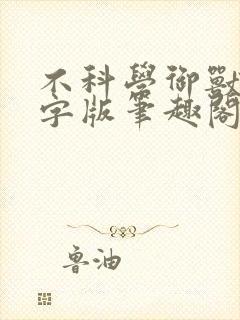 不科學御獸
字版筆趣閣
魯油